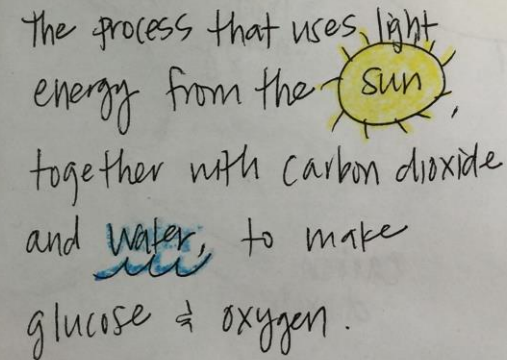 The process that uses light
energy from the sun,
together with carbon dioxide
and water, to make
glucose & oxygen.